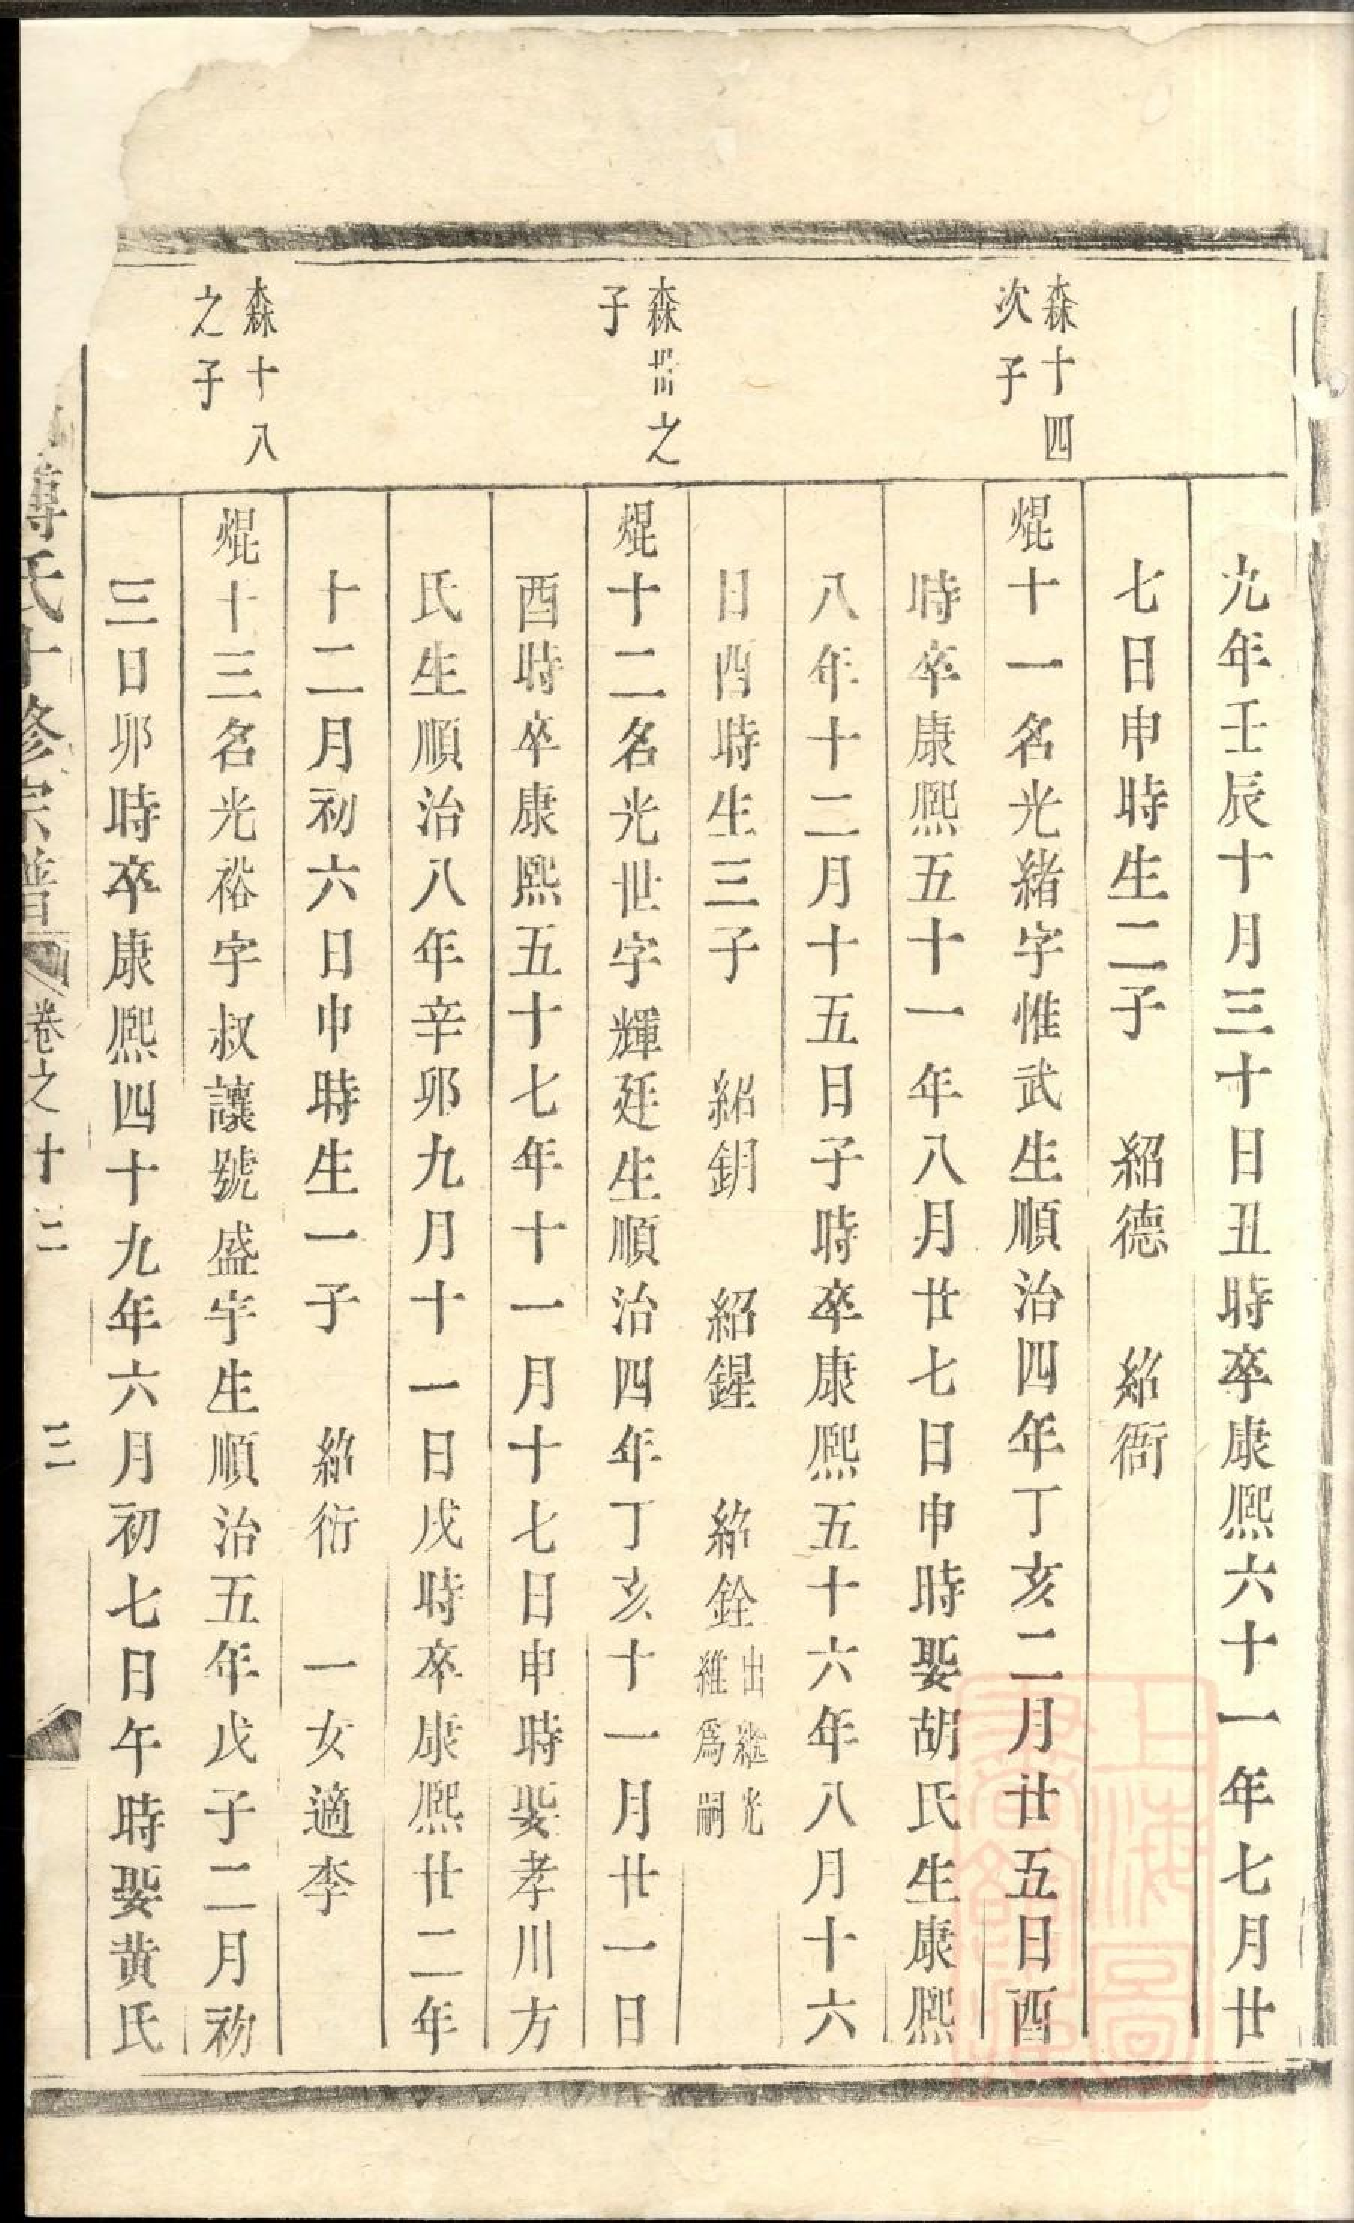 九年壬辰十月三十日丑時卒康熙六十一年七月廿
七日申時生二子　紹德　紹衙
森十四
次子
焜十一名光緒字惟武生順治四年丁亥二月廿五日酉
時卒康熙五十一年八月廿七日申時娶胡氏生康熙
八年十二月十五日子時卒康熙五十六年八月十六
日酉時生三子　紹鈅　紹鍟　紹銓
出繼光
維爲嗣
森卌之
子
焜十二名光世字輝廷生順治四年丁亥十一月廿一日
酉時卒康熙五十七年十一月十七日申時娶孝川方
氏生順治八年辛卯九月十一日戌時卒康熙廿二年
十二月初六日申時生一子　紹衍　一女適李
森十八
之子
焜十三名光裕字叔讓號盛宇生順治五年戊子二月初
三日卯時卒康熙四十九年六月初七日午時娶黄氏
傅氏十修宗譜　卷之十二　三
上海圖
書館藏